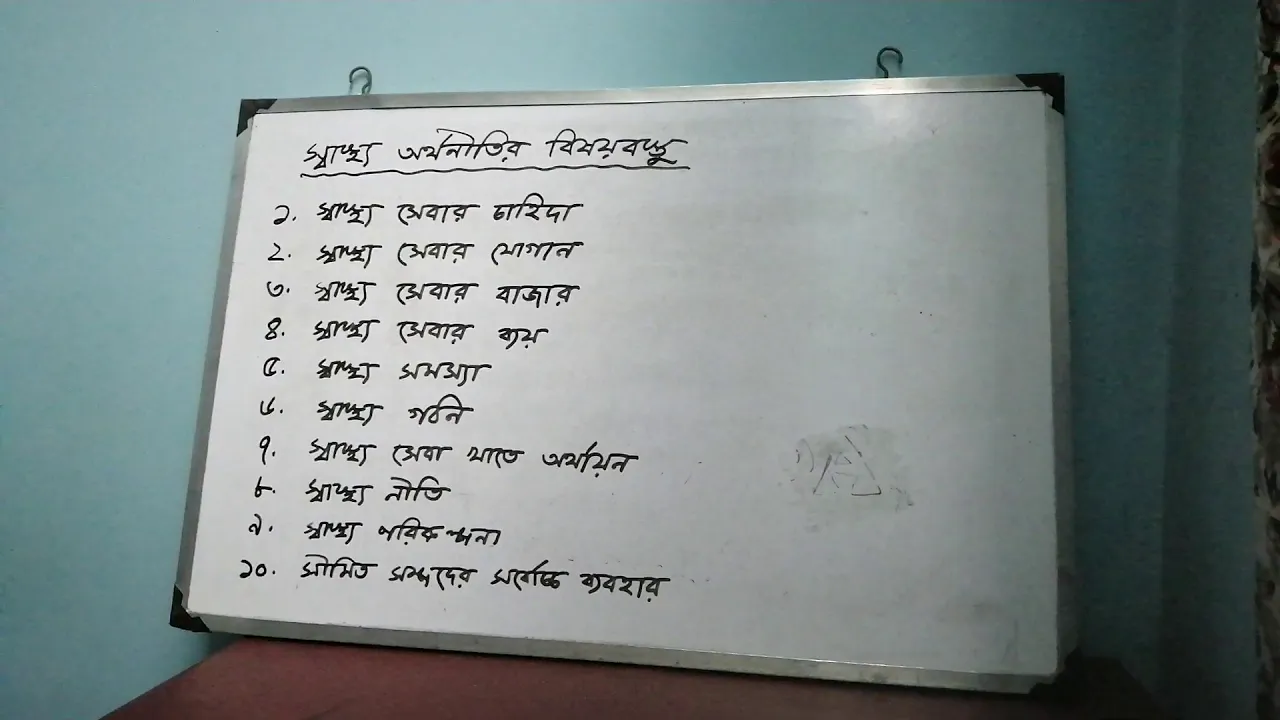 স্বাস্থ্য অর্থনীতির বিষয়বস্তু
১. স্বাস্থ্য সেবার চাহিদা
২. স্বাস্থ্য সেবার যোগান
৩. স্বাস্থ্য সেবার বাজার
৪. স্বাস্থ্য সেবার ব্যয়
৫. স্বাস্থ্য সমস্যা
৬. স্বাস্থ্য গঠনি
৭. স্বাস্থ্য সেবা খাতে অর্থায়ন
৮. স্বাস্থ্য নীতি
৯. স্বাস্থ্য পরিকল্পনা
১০. সীমিত সম্পদের সর্বোচ্চ ব্যবহার